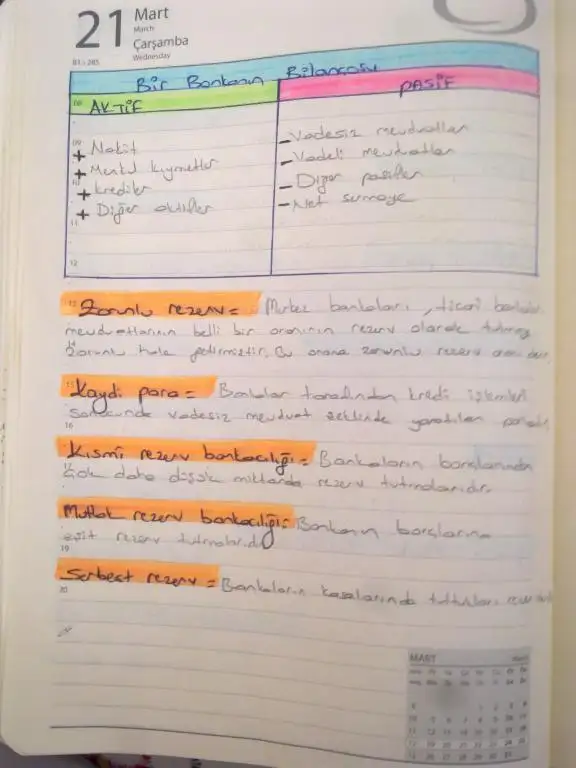 21 Mart
March
Çarşamba
Wednesday
81 - 285
Bir Bankanın Bilançosu
08 AKTİF
PASİF
09
+ Nakit
+ Menkul kıymetler
10
+ krediler
+ Diğer aktifler
11
12
- Vadesiz mevduatlar
- Vadeli mevduatlar
- Diğer pasifler
- Net sermaye
Zorunlu rezerv = Merkez bankaları, ticari
mevduatlarının belli bir oranının rezerv olarak
zorunlu hale getirmiştir. Bu orana zorunlu rezerv oranı
15
Kaydi para = Bankalar tarafından kredi işlemleri
sonucunda vadesiz mevduat şeklinde yaratılan
16
Kısmi rezerv bankacılığı = Bankaların borçlarından
çok daha düşük miktarda rezerv tutmalarıdır.
Mutlak rezerv bankacılığı = Bankanın borçlarına
eşit rezerv tutmalarıdır
19
Serbest rezerv = Bankaların kasalarında tuttukları
20
MART